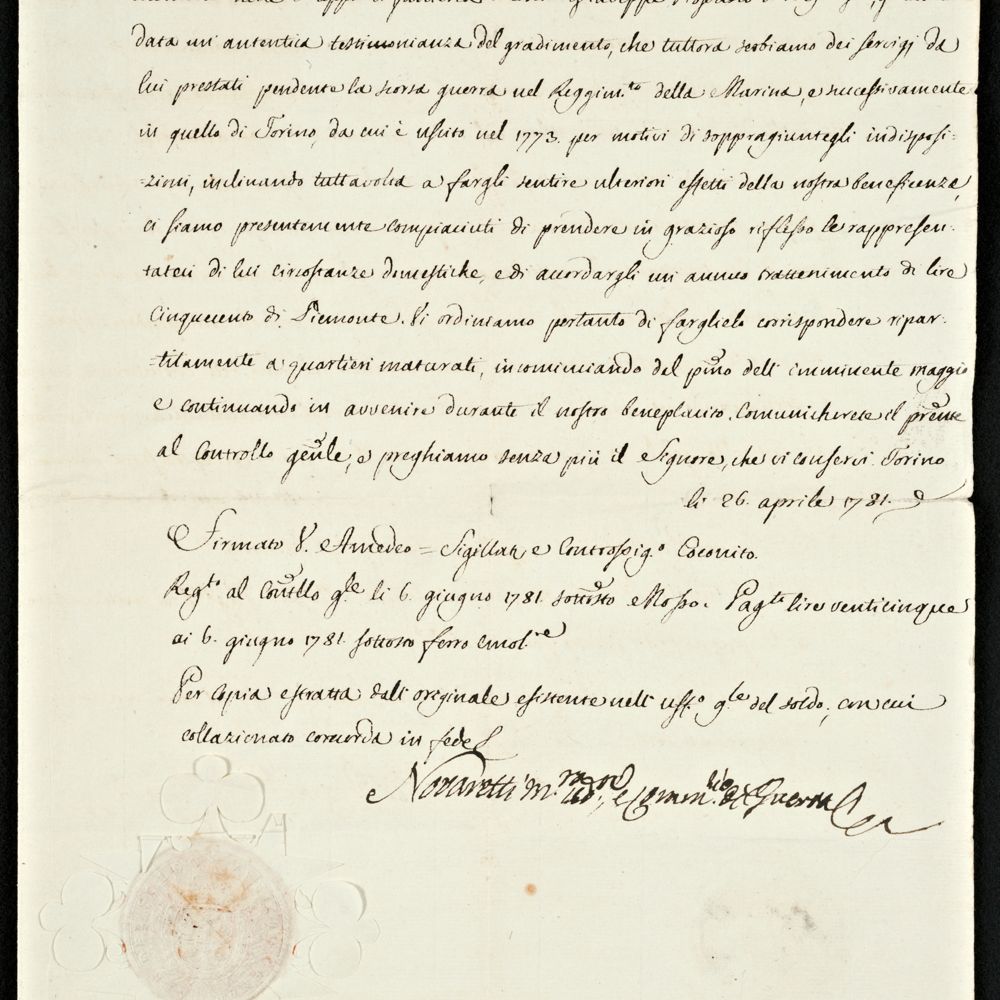 data un' autentica testimonianza del gradimento, che tuttora serbiamo dei servigj da
lui prestati pendente la scorsa guerra nel Reggim.to della Marina, e successivamente
in quello di Torino, da cui è uscito nel 1773. per motivi di soppragiuntegli indisposi=
=zioni, inclinando tuttavolta a fargli sentire ulteriori effetti della nostra beneficenza,
ci siamo presentemente compiaciuti di prendere in grazioso riflesso le rappresen-
tateci di lui circostanze domestiche, e di accordargli un annuo trattenimento di lire
Cinquecento di Piemonte. Vi ordiniamo pertanto di farglielo corrispondere ripar-
=titamente a quartieri maturati, incominciando dal pmo dell' imminente maggio
e continuando in avvenire durante il nostro beneplacito. Comunicherete il pnte
al Controllo gnle, e preghiamo senza più il Signore, che vi conservi. Torino
li 26. aprile 1781.
Firmato V. Amedeo = Sigillat, e Controssig.o Coconito.
Reg.to al Contllo g.le li 6. giugno 1781. sottosto Mosso. Pag.te lire venticinque
ai 6. giugno 1781. sottosto ferro
Per copia estratta dall' originale esistente nell' uff.o g.le del soldo, con cui
collazionato concorda in fede
Novaretti di Guerra